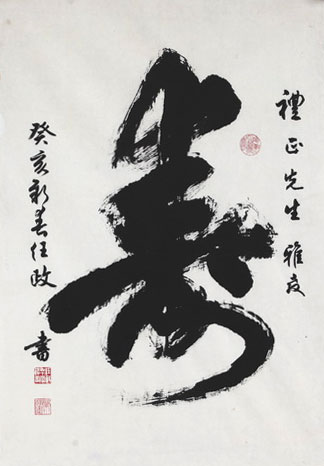 禮正先生雅友
壽
癸亥新春任政書